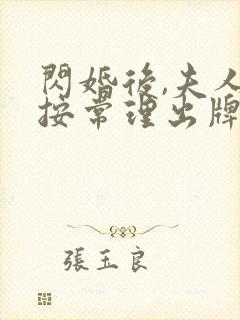 閃婚後,夫人
按常理出牌
張玉良